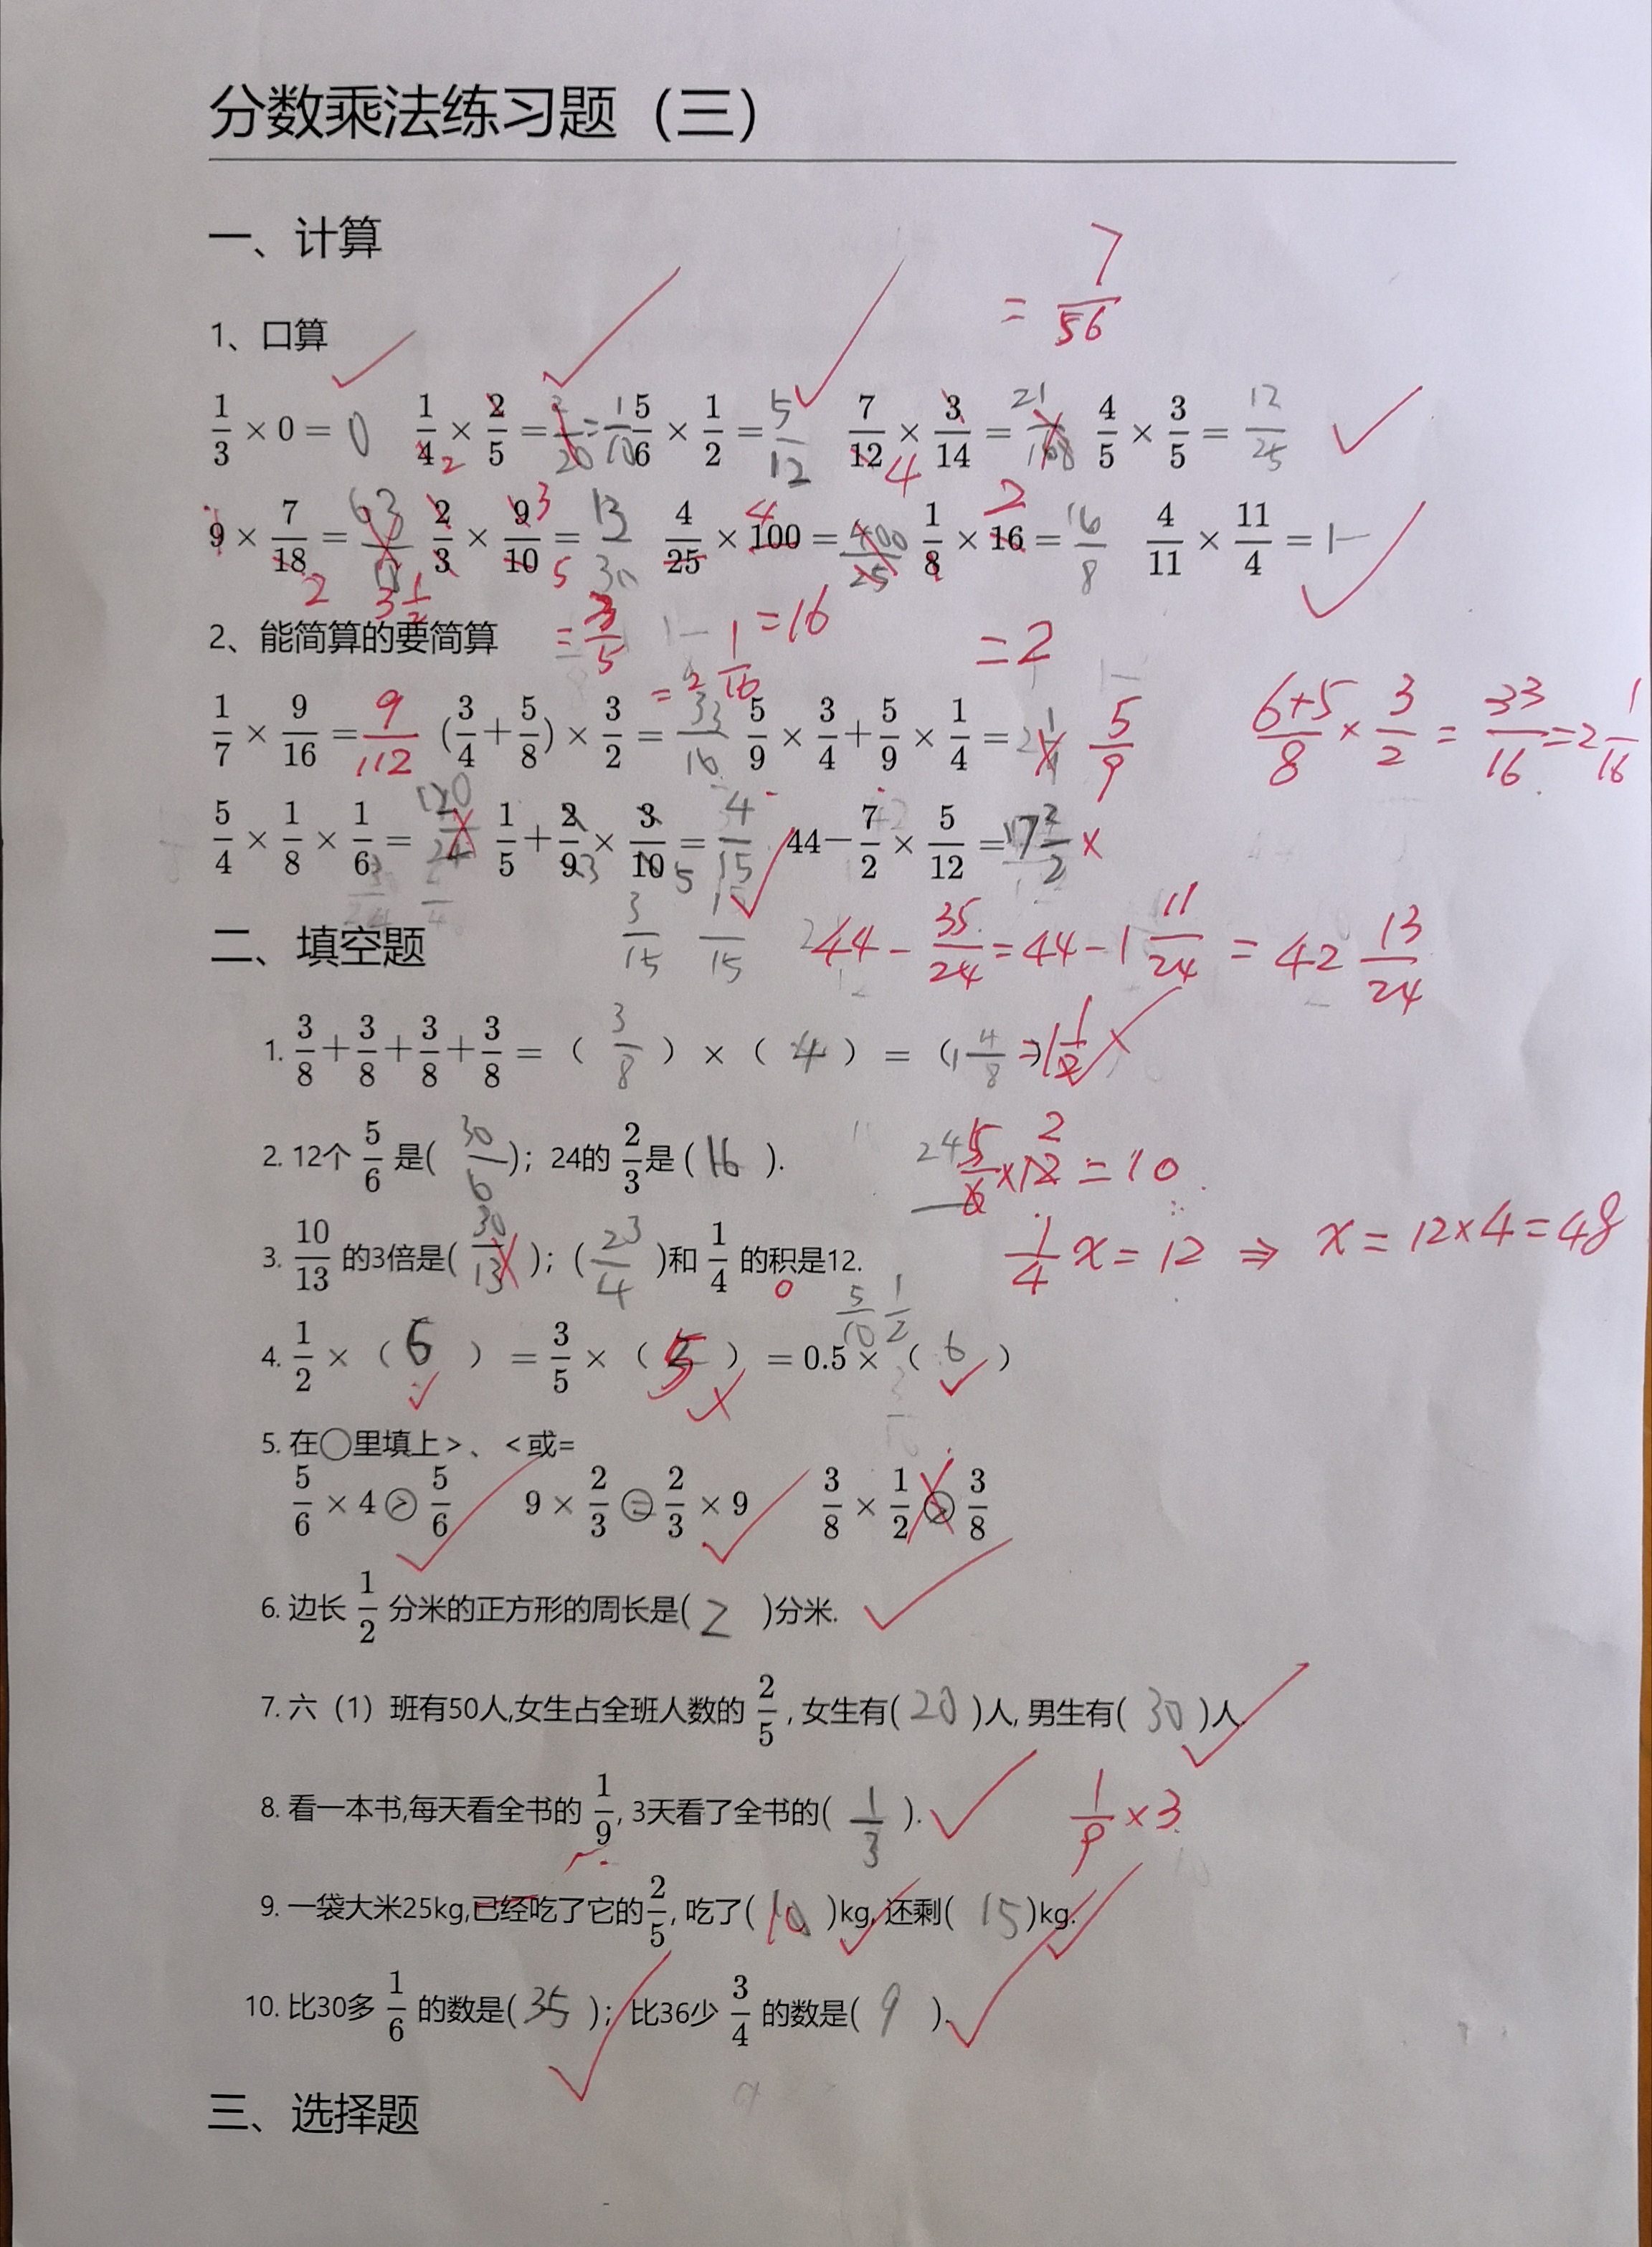 分数乘法练习题（三）
一、计算
= 7/56
1、口算
1/3 × 0 = 0 1/4 × 2/5 = 2/20 = 1/10 5/6 × 1/2 = 5/12 7/12 × 3/14 = 21/168 4/5 × 3/5 = 12/25
2 4
9 × 7/18 = 63/18 2/3 × 9/10 = 13/30 4/25 × 100 = 400/25 1/8 × 16 = 16/8 4/11 × 11/4 = 1
2 3 1/2 3 5 4 2
2、能简算的要简算 = 3/5 = 16 = 2
= 2 1/16
1/7 × 9/16 = 9/112 (3/4 + 5/8) × 3/2 = 33/16 5/9 × 3/4 + 5/9 × 1/4 = 5/9 (6+5)/8 × 3/2 = 33/16 = 2 1/16
5/4 × 1/8 × 1/6 = 120/24 1/5 + 2/9 × 3/10 = 4/15 44 − 7/2 × 5/12 = 17 2/2 ×
3 5
3/15 1/15
二、填空题
44 − 35/24 = 44 − 1 11/24 = 42 13/24
1. 3/8 + 3/8 + 3/8 + 3/8 = （ 3/8 ） × （ 4 ） = （1 4/8 ） = 1 1/2
2. 12个 5/6 是( 30/6 )；24的 2/3 是 ( 16 ).
5/6 × 12 = 10
3. 10/13 的3倍是( 30/13 )；( 23/4 )和 1/4 的积是12.
1/4 x = 12 ⇒ x = 12×4 = 48
5/10 1/2
4. 1/2 × （ 6 ） = 3/5 × （ 5 ） = 0.5 × （ 6 ）
5. 在○里填上>、<或=
5/6 × 4 > 5/6 9 × 2/3 = 2/3 × 9 3/8 × 1/2 > 3/8
6. 边长 1/2 分米的正方形的周长是( 2 )分米.
7. 六（1）班有50人,女生占全班人数的 2/5 , 女生有( 20 )人, 男生有( 30 )人.
8. 看一本书,每天看全书的 1/9 , 3天看了全书的( 1/3 ). 1/9 × 3
9. 一袋大米25kg,已经吃了它的 2/5 , 吃了( 10 )kg, 还剩( 15 )kg.
10. 比30多 1/6 的数是( 35 )；比36少 3/4 的数是( 9 ).
三、选择题